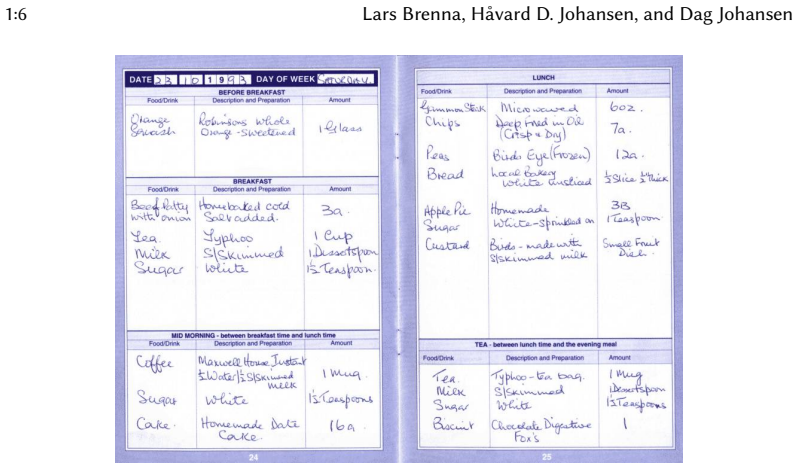 1:6
Lars Brenna, Håvard D. Johansen, and Dag Johansen
DATE 23 10 1993 DAY OF WEEK SATURDAY.
BEFORE BREAKFAST
Food/Drink Description and Preparation Amount
Orange Robinsons Whole 1 Glass
Squash Orange - Sweetened
BREAKFAST
Food/Drink Description and Preparation Amount
Beef Patty Homebaked cold 3a.
with onion Salt added.
Tea. Typhoo 1 Cup
Milk S/Skimmed 1 Dessertspoon
Sugar White 1½ Teaspoon.
MID MORNING - between breakfast time and lunch time
Food/Drink Description and Preparation Amount
Coffee Maxwell House Instant 1 Mug.
½ Water/½ S/Skimmed
milk
Sugar White 1½ Teaspoons
Cake. Homemade Date 16a.
Cake.
24
LUNCH
Food/Drink Description and Preparation Amount
Gammon Steak Microwaved 6oz.
Chips Deep Fried in Oil 7a.
(Crisp & Dry)
Peas Birds Eye (Frozen) 12a.
Bread Local Bakery
White unsliced ½ Slice thick
Apple Pie Homemade 3B
Sugar White - Sprinkled on 1 Teaspoon
Custard Birds - made with Small Fruit
S/Skimmed milk Dish.
TEA - between lunch time and the evening meal
Food/Drink Description and Preparation Amount
Tea. Typhoo - tea bag. 1 Mug
Milk S/Skimmed 1 Dessertspoon
Sugar White 1½ Teaspoons
Biscuit Chocolate Digestive 1
Fox's
25